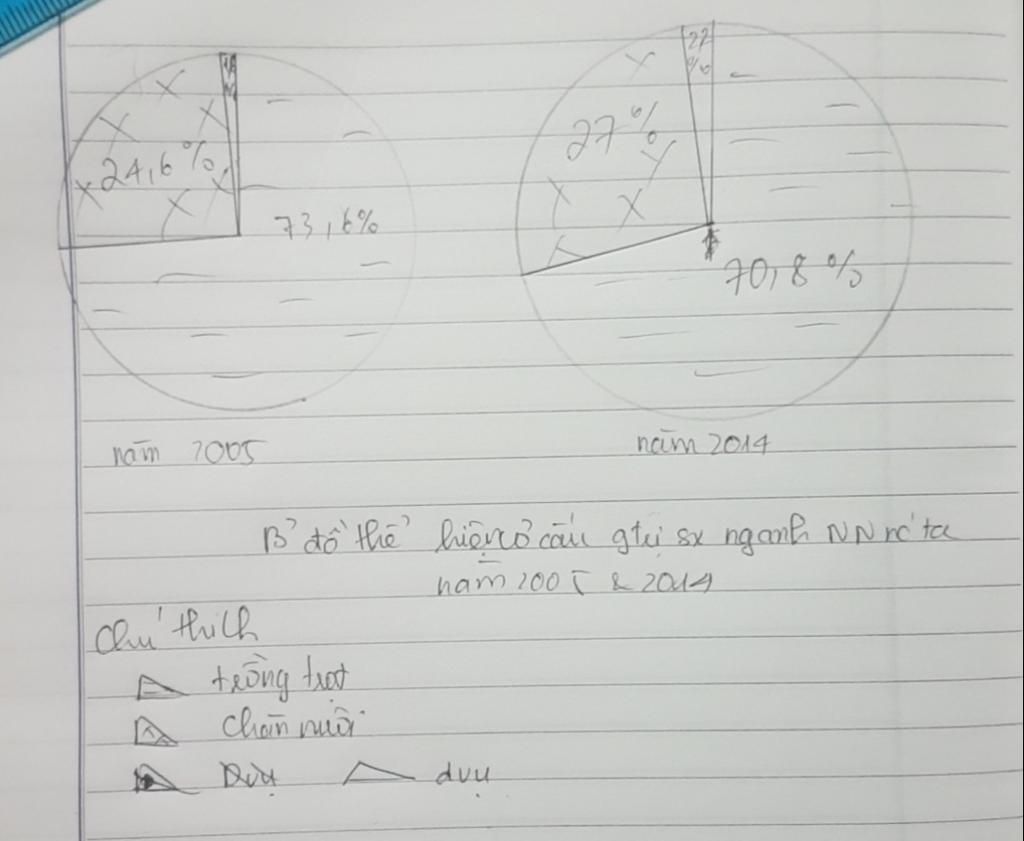 24,6%
73,6%
27%
22
%
70,8%
năm 2005
năm 2014
B' đồ thể hiện cơ cấu gtrị sx ngành NN nc' ta
năm 2005 & 2014
Chú thích
trồng trọt
chăn nuôi
Dvụ dvụ